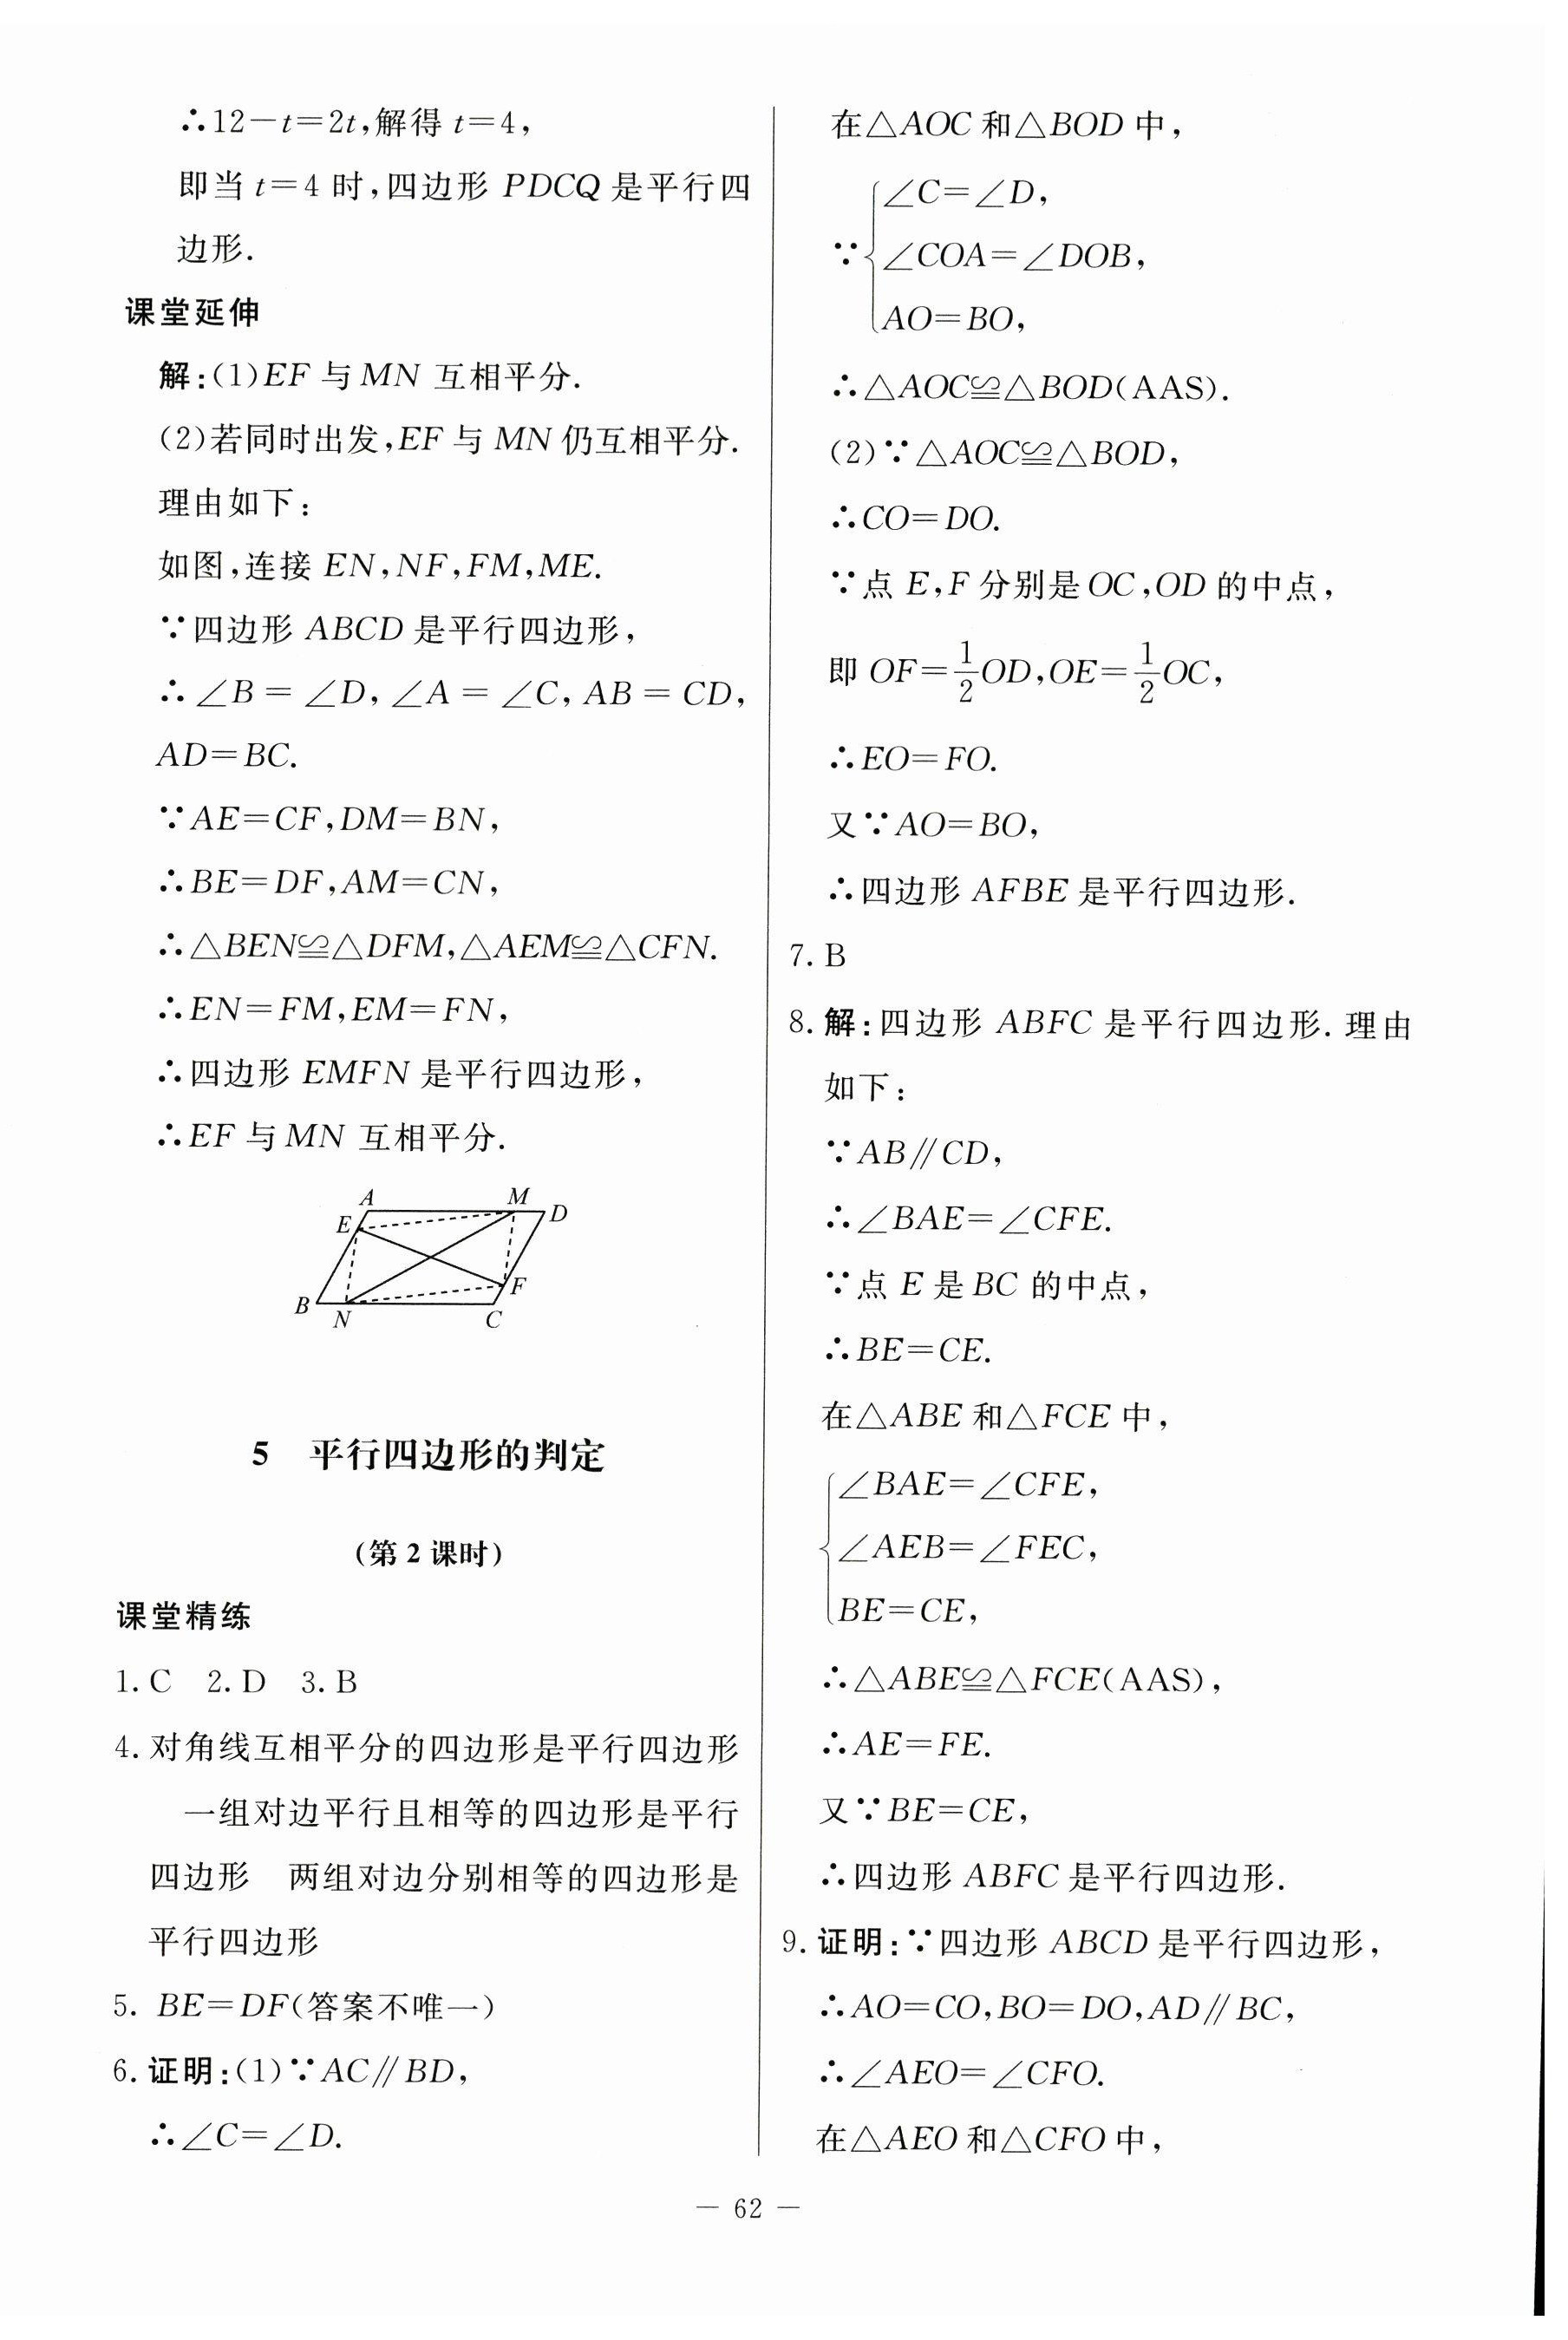 ∴12－t＝2t,解得 t＝4,
即当 t＝4 时,四边形 PDCQ 是平行四
边形.
课堂延伸
解:(1)EF 与 MN 互相平分.
(2)若同时出发,EF 与 MN 仍互相平分.
理由如下:
如图,连接 EN,NF,FM,ME.
∵四边形 ABCD 是平行四边形,
∴∠B＝∠D,∠A＝∠C,AB＝CD,
AD＝BC.
∵AE＝CF,DM＝BN,
∴BE＝DF,AM＝CN,
∴△BEN≌△DFM,△AEM≌△CFN.
∴EN＝FM,EM＝FN,
∴四边形 EMFN 是平行四边形,
∴EF 与 MN 互相平分.
A M
E D
F
B N C
5 平行四边形的判定
(第 2 课时)
课堂精练
1. C 2. D 3. B
4. 对角线互相平分的四边形是平行四边形
一组对边平行且相等的四边形是平行
四边形 两组对边分别相等的四边形是
平行四边形
5. BE＝DF(答案不唯一)
6. 证明:(1)∵AC∥BD,
∴∠C＝∠D.
在△AOC 和△BOD 中,
∠C＝∠D,
∵ ∠COA＝∠DOB,
AO＝BO,
∴△AOC≌△BOD(AAS).
(2)∵△AOC≌△BOD,
∴CO＝DO.
∵点 E,F 分别是 OC,OD 的中点,
即 OF＝1/2OD,OE＝1/2OC,
∴EO＝FO.
又∵AO＝BO,
∴四边形 AFBE 是平行四边形.
7. B
8. 解:四边形 ABFC 是平行四边形. 理由
如下:
∵AB∥CD,
∴∠BAE＝∠CFE.
∵点 E 是 BC 的中点,
∴BE＝CE.
在△ABE 和△FCE 中,
∠BAE＝∠CFE,
∠AEB＝∠FEC,
BE＝CE,
∴△ABE≌△FCE(AAS),
∴AE＝FE.
又∵BE＝CE,
∴四边形 ABFC 是平行四边形.
9. 证明:∵四边形 ABCD 是平行四边形,
∴AO＝CO,BO＝DO,AD∥BC,
∴∠AEO＝∠CFO.
在△AEO 和△CFO 中,
— 62 —